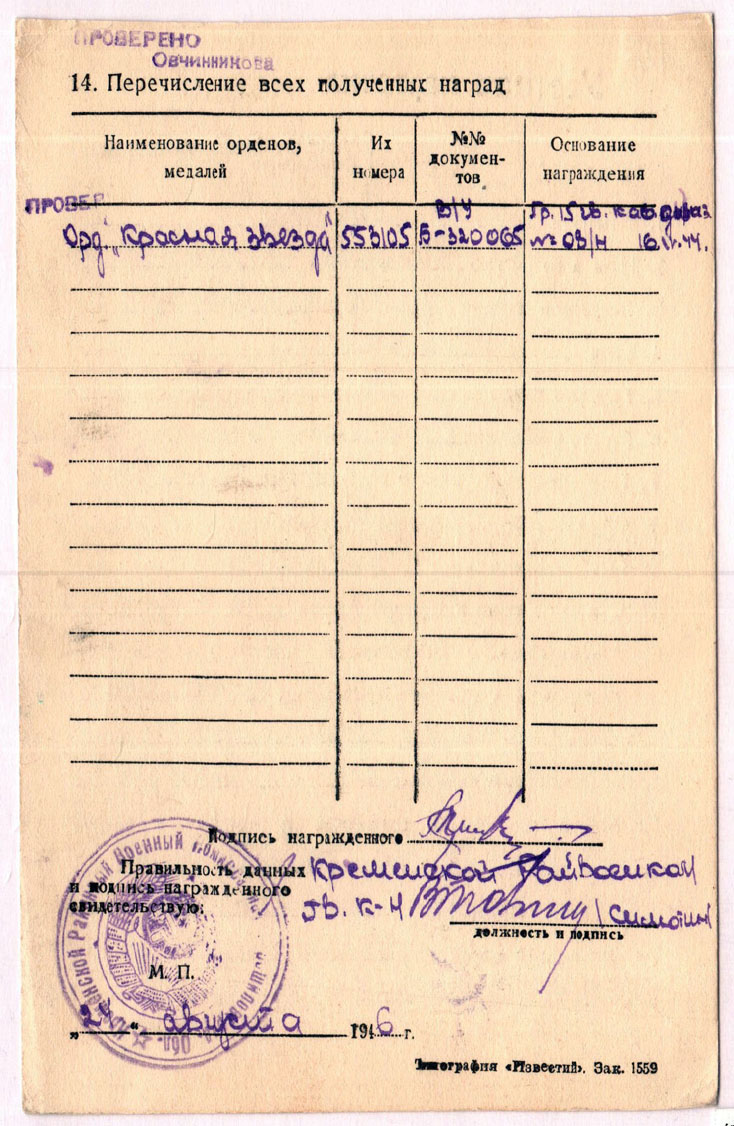 ПРОВЕРЕНО
Овчинникова
14. Перечисление всех полученных наград
Наименование орденов, медалей
Их номера
№№ документов
Основание награждения
ПРОВЕР
Орд. „Красная звезда"
553105
В/У Б-320065
Пр. 15 гв. кав. див
№ 03/н 16
44.
Подпись награжденного
Правильность данных
и подпись награжденного
свидетельствую:
Кременской Райвоенком
гв. к-н
должность и подпись
М. П.
„24" августа 1946 г.
Типография «Известий». Зак. 1559